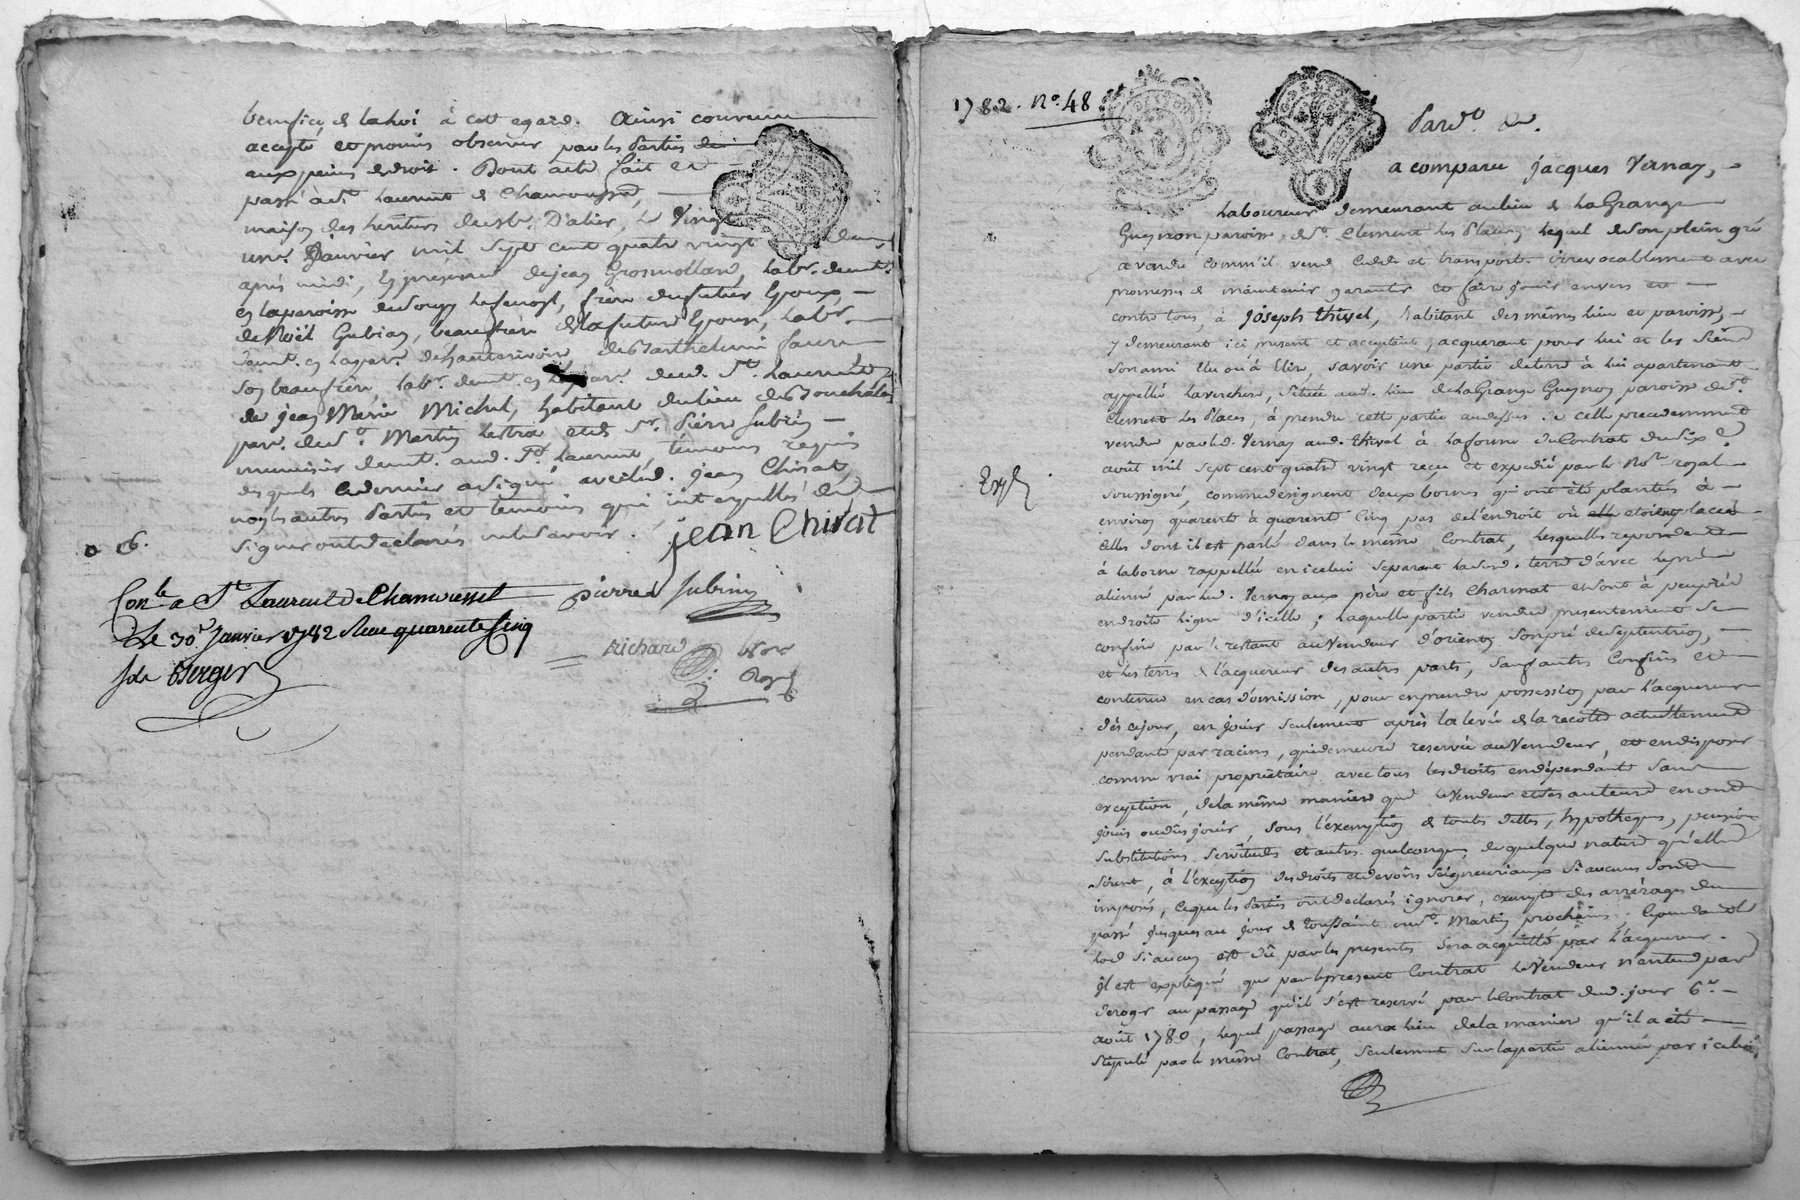 benefice de la loi à cet egard. Ainsi convenu
accepté et promis observer par les Parties
aux peines de droit. Dont acte fait et
passé à St. Laurent de Chamousset,
maison des heritiers de Dalier, le Vingt
un. Janvier mil sept cent quatre vingt deux,
après midi, En presence de jean Grosmollard, labr. demt.
en la paroisse de Souzy frère du futur Epoux,
de Noël Gubian, beaufrère de la future Epouse, labr.
demt. en la parr. de hauterivoire, de Barthelemi faure
son beaufrère, labr. demt. en la par. dud. St. Laurent,
de jean Marie Michel, habitant du lieu des Bouchales
parr. de St. Martin Lestra et de Sr. Pierre Subrin
menuisier demt. aud. St. Laurent, témoins requis
desquels le dernier a signé avec led. jean Chirat,
non les autres Parties et temoins qui, interpellés de
signer ont declarés ne le savoir.
jean Chirat
pierre Subrin
Conlé a St. Laurent de Chamousset
Le 30e Janvier 1782 Recu quarente Cinq
sols Berger
Richard
Nore
Royal
1782. No. 48.
Pardt.
a comparu jacques Vernay,
Laboureur demeurant au lieu de la Grange
Gueynon paroisse de St. Clement les Places, lequel de son plein gré
a vendu comm'il vend cede et transporte irrevocablement avec
promesse de maintenir garantir et faire jouir envers et
contre tous, à joseph thivel, habitant des mêmes lieu et paroisse,
y demeurant ici present et acceptant, acquerant pour lui et les siens
son ami Elu ou à Elire, savoir une partie de terre à lui apartenant
appellée la verchere, Située aud. lieu de la Grange Gueynon paroisse de St.
Clement les Places, à prendre cette partie au dessus de celle precedemment
vendue par led. Vernay aud. thivel à la forme du Contrat du Six
août mil sept cent quatre vingt reçu et expedié par le Nore. royal
soussigné, comme designent deux bornes qui ont été plantées à
environ quarente à quarente Cinq pas de l'endroit où etoient placées
Celles dont il est parlé dans le même Contrat, lesquelles repondent
à la borne rappellée en icelui separant lad. terre d'avec le pré
aliené par led. Vernay aux père et fils Charmat et sont à peu près
en droite ligne d'icelle; laquelle partie vendue presentement se
confine par le restant au Vendeur d'orient, son pré de Septentrion,
et les terres de l'acquereur des autres parts, sauf autres Confins et
contenue en cas d'omission, pour en prendre possession par l'acquereur
dès ce jour, en jouir seulement après la levée de la recolte actuellement
pendante par racines, qui demeure reservée au Vendeur, et en disposer
comme vrai propriètaire avec tous les droits en dépendant sans
exception, de la même maniere que le Vendeur et ses auteurs en ont
joui ou dûs jouir, sous l'exemption de toutes dettes, hypotheques, pension
substitutions, servitudes et autres quelconques de quelque nature qu'elles
Soient, à l'exception des droits et devoirs Seigneuriaux si aucuns sont
imposés, ce que les Parties ont declarés ignorer, exempte des arrérages du
passé jusques au jour de toussaint ou St. Martin prochains; Cependant le
lod si aucun est dû par les presentes sera acquitté par l'acquereur.
Il est expliqué que par le present Contrat le Vendeur n'entend pas
deroger au passage qu'il s'est reservé par le Contrat dud. jour 6e.
août 1780, lequel passage aura lieu de la maniere qu'il a été
stipulé par le même Contrat, seulement sur la partie alienée par icelui,